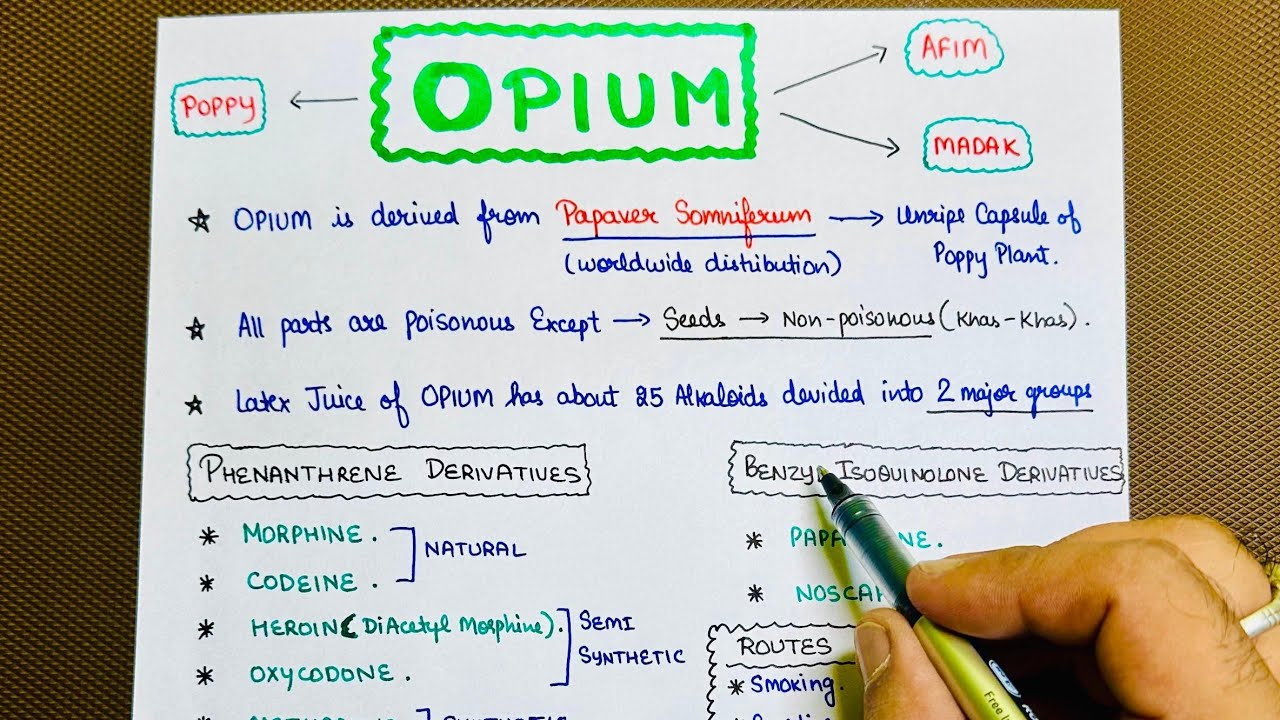 OPIUM
POPPY
AFIM
MADAK
OPIUM is derived from Papaver Somniferum → Unripe Capsule of
(worldwide distribution) Poppy Plant.
All parts are poisonous Except → Seeds → Non-poisonous (Khas-Khas).
Latex Juice of OPIUM has about 25 Alkaloids devided into 2 major groups
PHENANTHRENE DERIVATIVES
* MORPHINE.
* CODEINE.
NATURAL
* HEROIN (DiAcetyl Morphine).
* OXYCODONE.
SEMI
SYNTHETIC
BENZYL ISOQUINOLONE DERIVATIVES
ROUTES
* Smoking.
Free